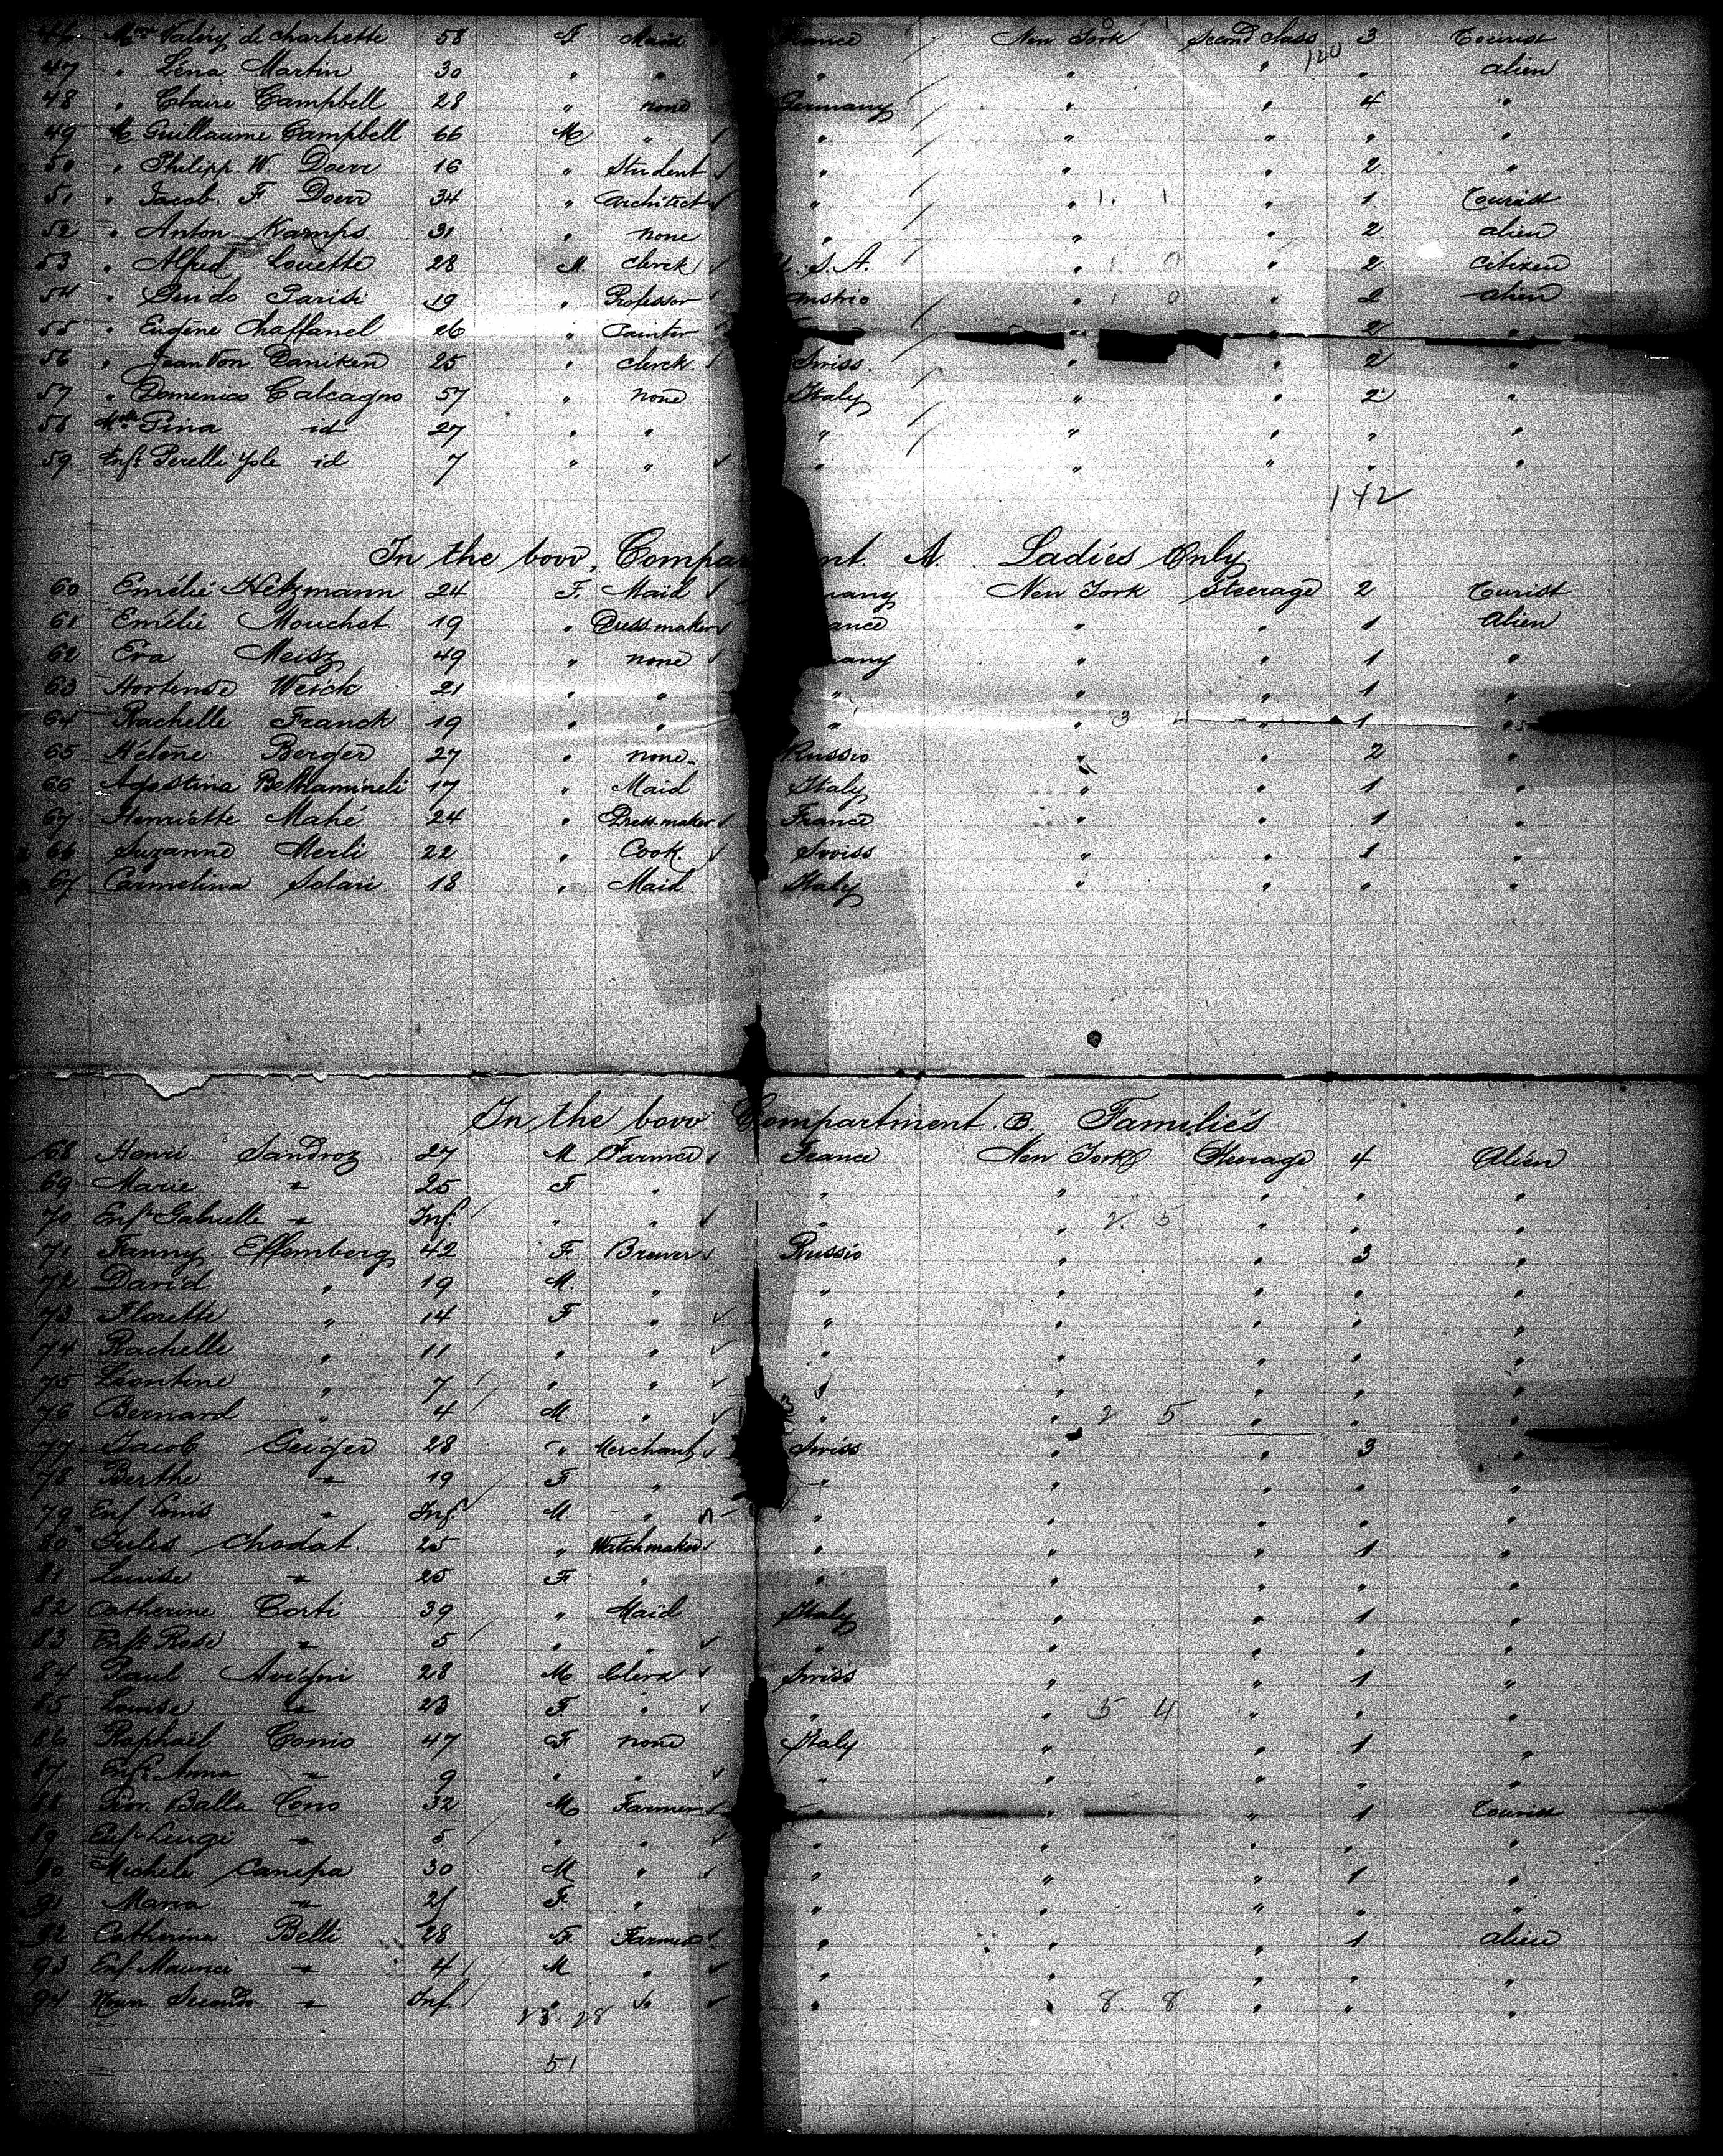 46 Mme Valéry de charhette 58 F. Maid France New York Second class 3 Tourist
120
47 " Léna Martin 30 " " " " " " alien
48 " Claire Campbell 28 " none Germany " " 4 "
49 M Guillaume Campbell 66 M " " " " " "
50 " Philipp. W. Doerr 16 " Student " " " 2 "
51 " Jacob F Doerr 34 " Architect " " 1. 1 " 1 Tourist
52 " Anton Kamps 31 " none " " " 2 alien
53 " Alfred Louette 28 M. clerck U. S. A. " 1 0 " 2 citizen
54 " Guido Parisi 19 " Professor " 1 0 " 2 alien
55 " Eugène Chaffanel 26 " Painter " " 2 "
56 " Jean Von Daniken 25 " clerck Swiss " " 2 "
57 " Domenico Calcagno 57 " none Italy " " 2 "
58 Mlle Pina id 27 " " " " " " "
59 Enft Perelli Yole id 7 " " " " " " "
142
In the bow, Compar nt. A. Ladies Only.
60 Emélie Hetzmann 24 F. Maid many New York Steerage 2 Tourist
61 Emélie Mouchot 19 " Dressmaker ance " " 1 Alien
62 Eva Meisz 49 " none many " " 1 "
63 Hortense Weick 21 " " " " " 1 "
64 Rachelle Franck 19 " " " " 3 4 " 1 "
65 Hélène Berger 27 " none Russio " " 2 "
66 Agostina 17 " Maid Italy " " 1 "
67 Henriette Mahé 24 " Dressmaker France " " 1 "
66 Suzanne Merli 22 " Cook. Swiss " " 1 "
67 Carmelina Solari 18 " Maid Italy " " " "
In the bow Compartment. B. Familie's
68 Henri Sandroz 27 M Farmer France New York Steerage 4 Alien
69 Marie " 25 F " " " " " "
70 Enft Gabrielle " Inft " " " " 2. 5 " " "
71 Fanny Effemberg 42 F Brewer Russio " " 3 "
72 David " 19 M. " " " " " "
73 Florette " 14 F " " " " " "
74 Rachelle " 11 " " " " " " "
75 Leontine " 7 " " " " " " "
76 Bernard " 4 M. " " " 2 5 " " "
77 Jacob Geiger 28 " Merchant Swiss " " 3 "
78 Berthe " 19 F " " " " " "
79 Enf Louis " Inft M. " " " " " "
80 Jules Chodat 25 " Watchmaker " " " 1 "
81 Louise " 25 F " " " " " "
82 Catherine Corti 39 " Maid Italy " " 1 "
83 Enft Rose " 5 " " " " " " "
84 Paul Avigni 28 M Clerk Swiss " " 1 "
85 Louise " 23 F " " " 5 4 " " "
86 Raphaël Conio 47 F none Italy " " 1 "
87 Enft Anna " 9 " " " " " " "
88 Balla Ceno 32 M Farmer " " " 1 Tourist
89 Enft Luigi " 5 " " " " " " "
90 Michele Canepa 30 M " " " " 1 "
91 Maria " F. " " " " " "
92 Catherina Belli 28 F. Farmer " " " 1 alien
93 Enf Maurice " 4 M " " " " " "
94 Secondo " Inf. " " " " 8. 8 " " "
23. 28
51